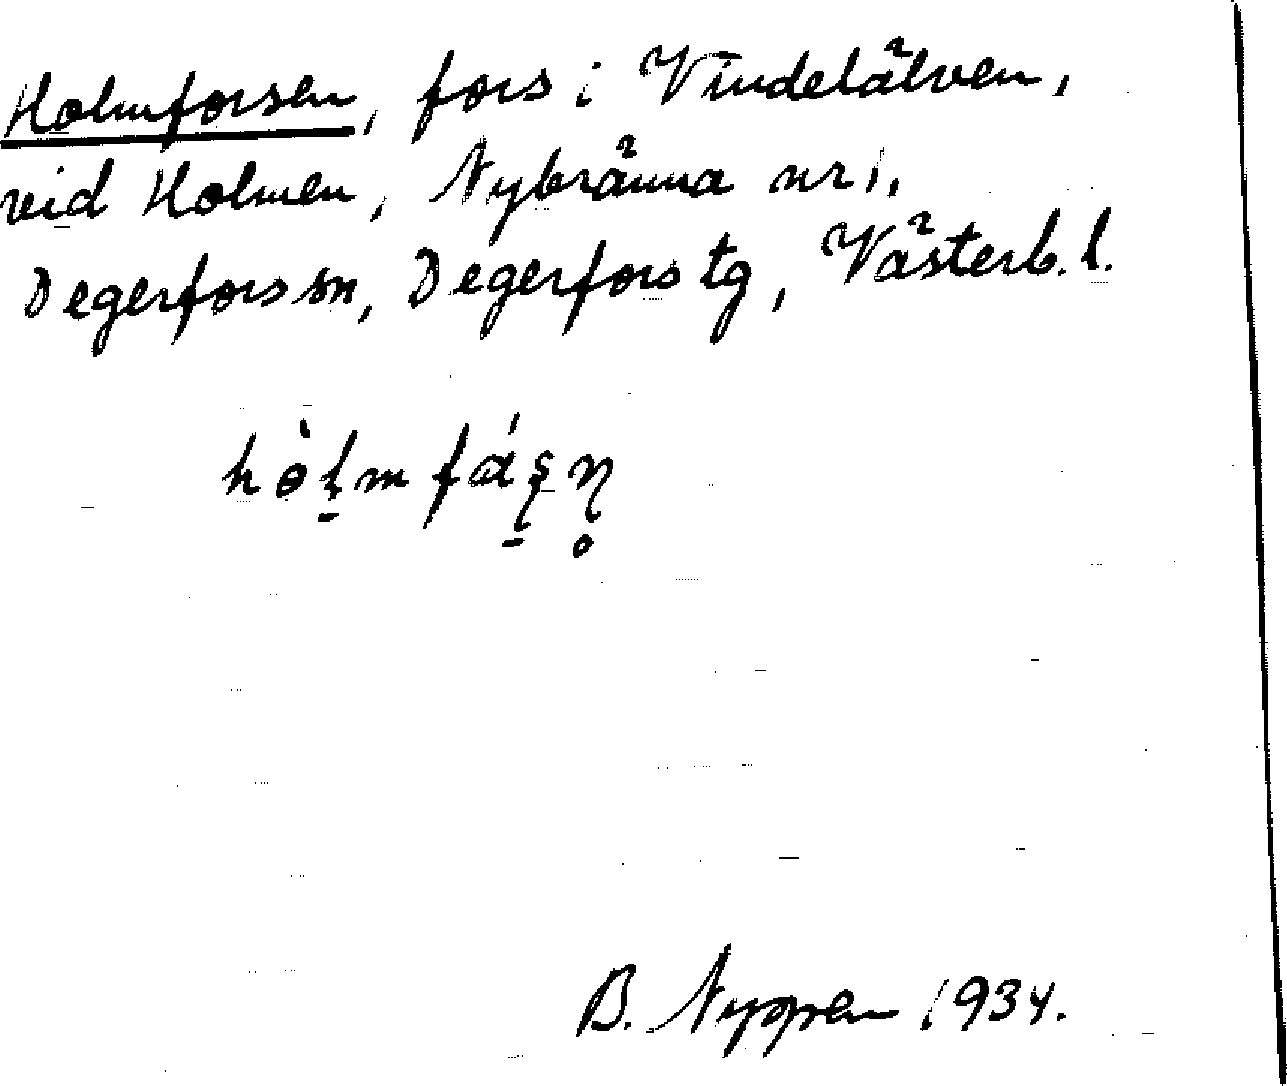 Holmforsen, fors i Vindelälven,
vid Holmen, Nybränna nr 1,
Degerfors sn, Degerfors tg, Västerb. l.
B. Nyppen 1934.